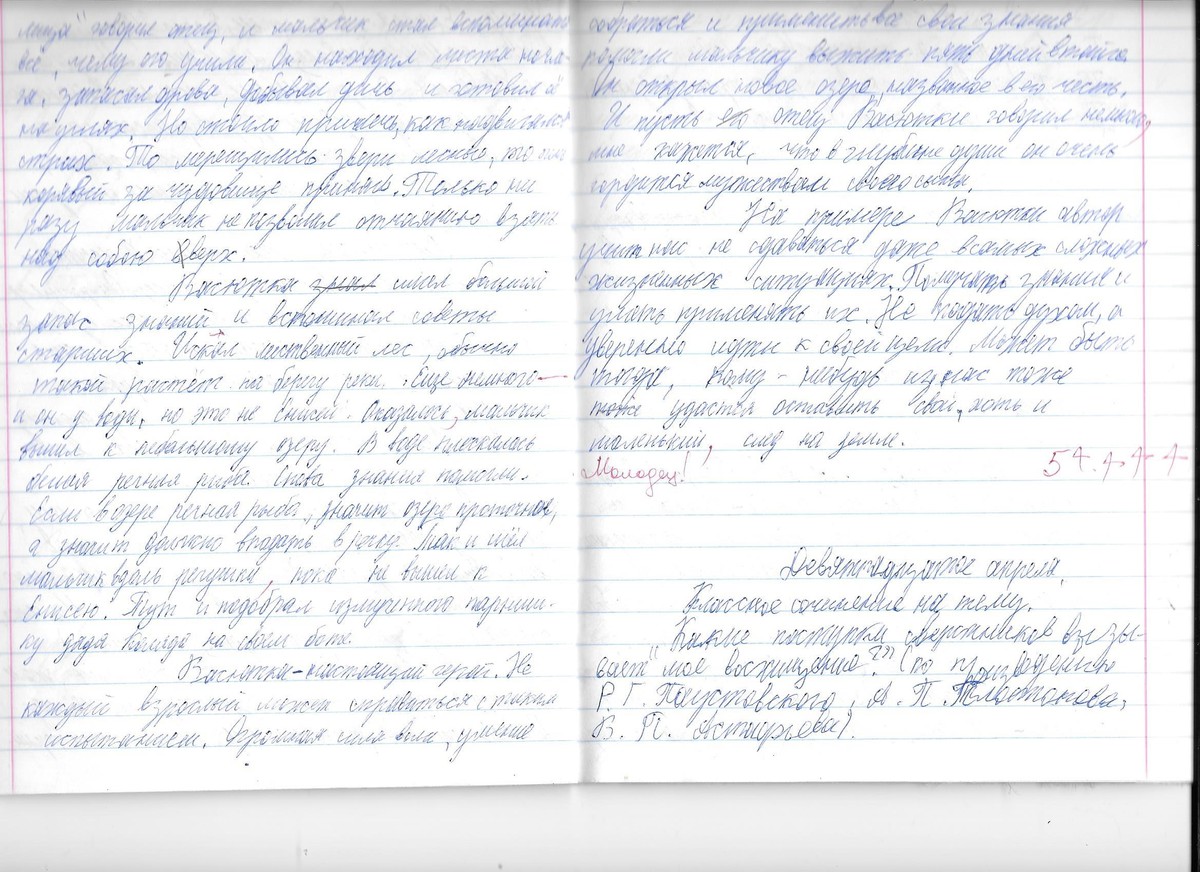 говорил отец, и мальчик стал вспоминать
всё, чему его учили. Он находил места ночле-
га, запасал дрова, добывал дичь и готовил её
на углях. Но стоило прилечь, как надвигался
страх. То мерещились звери лесные, то
корявый за чудовище принял. Только ни
разу мальчик не позволил отчаянию взять
над собою верх.
Васютка знал имел большой
запас знаний и вспоминал советы
старших. Искал лиственный лес, обычно
такой растёт на берегу реки. Ещё немного –
и он у воды, но это не Енисей. Оказалось, мальчик
вышел к небольшому озеру. В воде плескалась
белая речная рыба. Снова знания помогли.
Если в озере речная рыба, значит озеро проточное,
а значит должно впадать в реку. Так и шёл
мальчик вдоль речушки, пока не вышел к
Енисею. Тут и подобрал измученного парниш-
ку дядя Коляда на своём боте.
Васютка – настоящий герой. Не
каждый взрослый может справиться с таким
испытанием. Огромная сила воли, умение
собраться и применить все свои знания
помогли мальчику выжить пять дней в тайге.
Он открыл новое озеро, названное в его честь.
И пусть его отец Васютки говорил немного,
мне кажется, что в глубине души он очень
гордится мужеством своего сына.
На примере Васютки автор
учит нас не сдаваться даже в самых сложных
жизненных ситуациях. Получать знания и
уметь применять их. Не падать духом, а
уверенно идти к своей цели. Может быть
тогда, кому-нибудь из нас тоже
тоже удастся оставить свой, хоть и
маленький, след на земле.
Молодец! 5+.+++
Девятнадцатое апреля.
Классное сочинение на тему.
"Какие поступки сверстников вызы-
вает моё восхищение"?" (по произведениям
Р. Г. Паустовского, А. П. Платонова,
В. П. Астафьева).